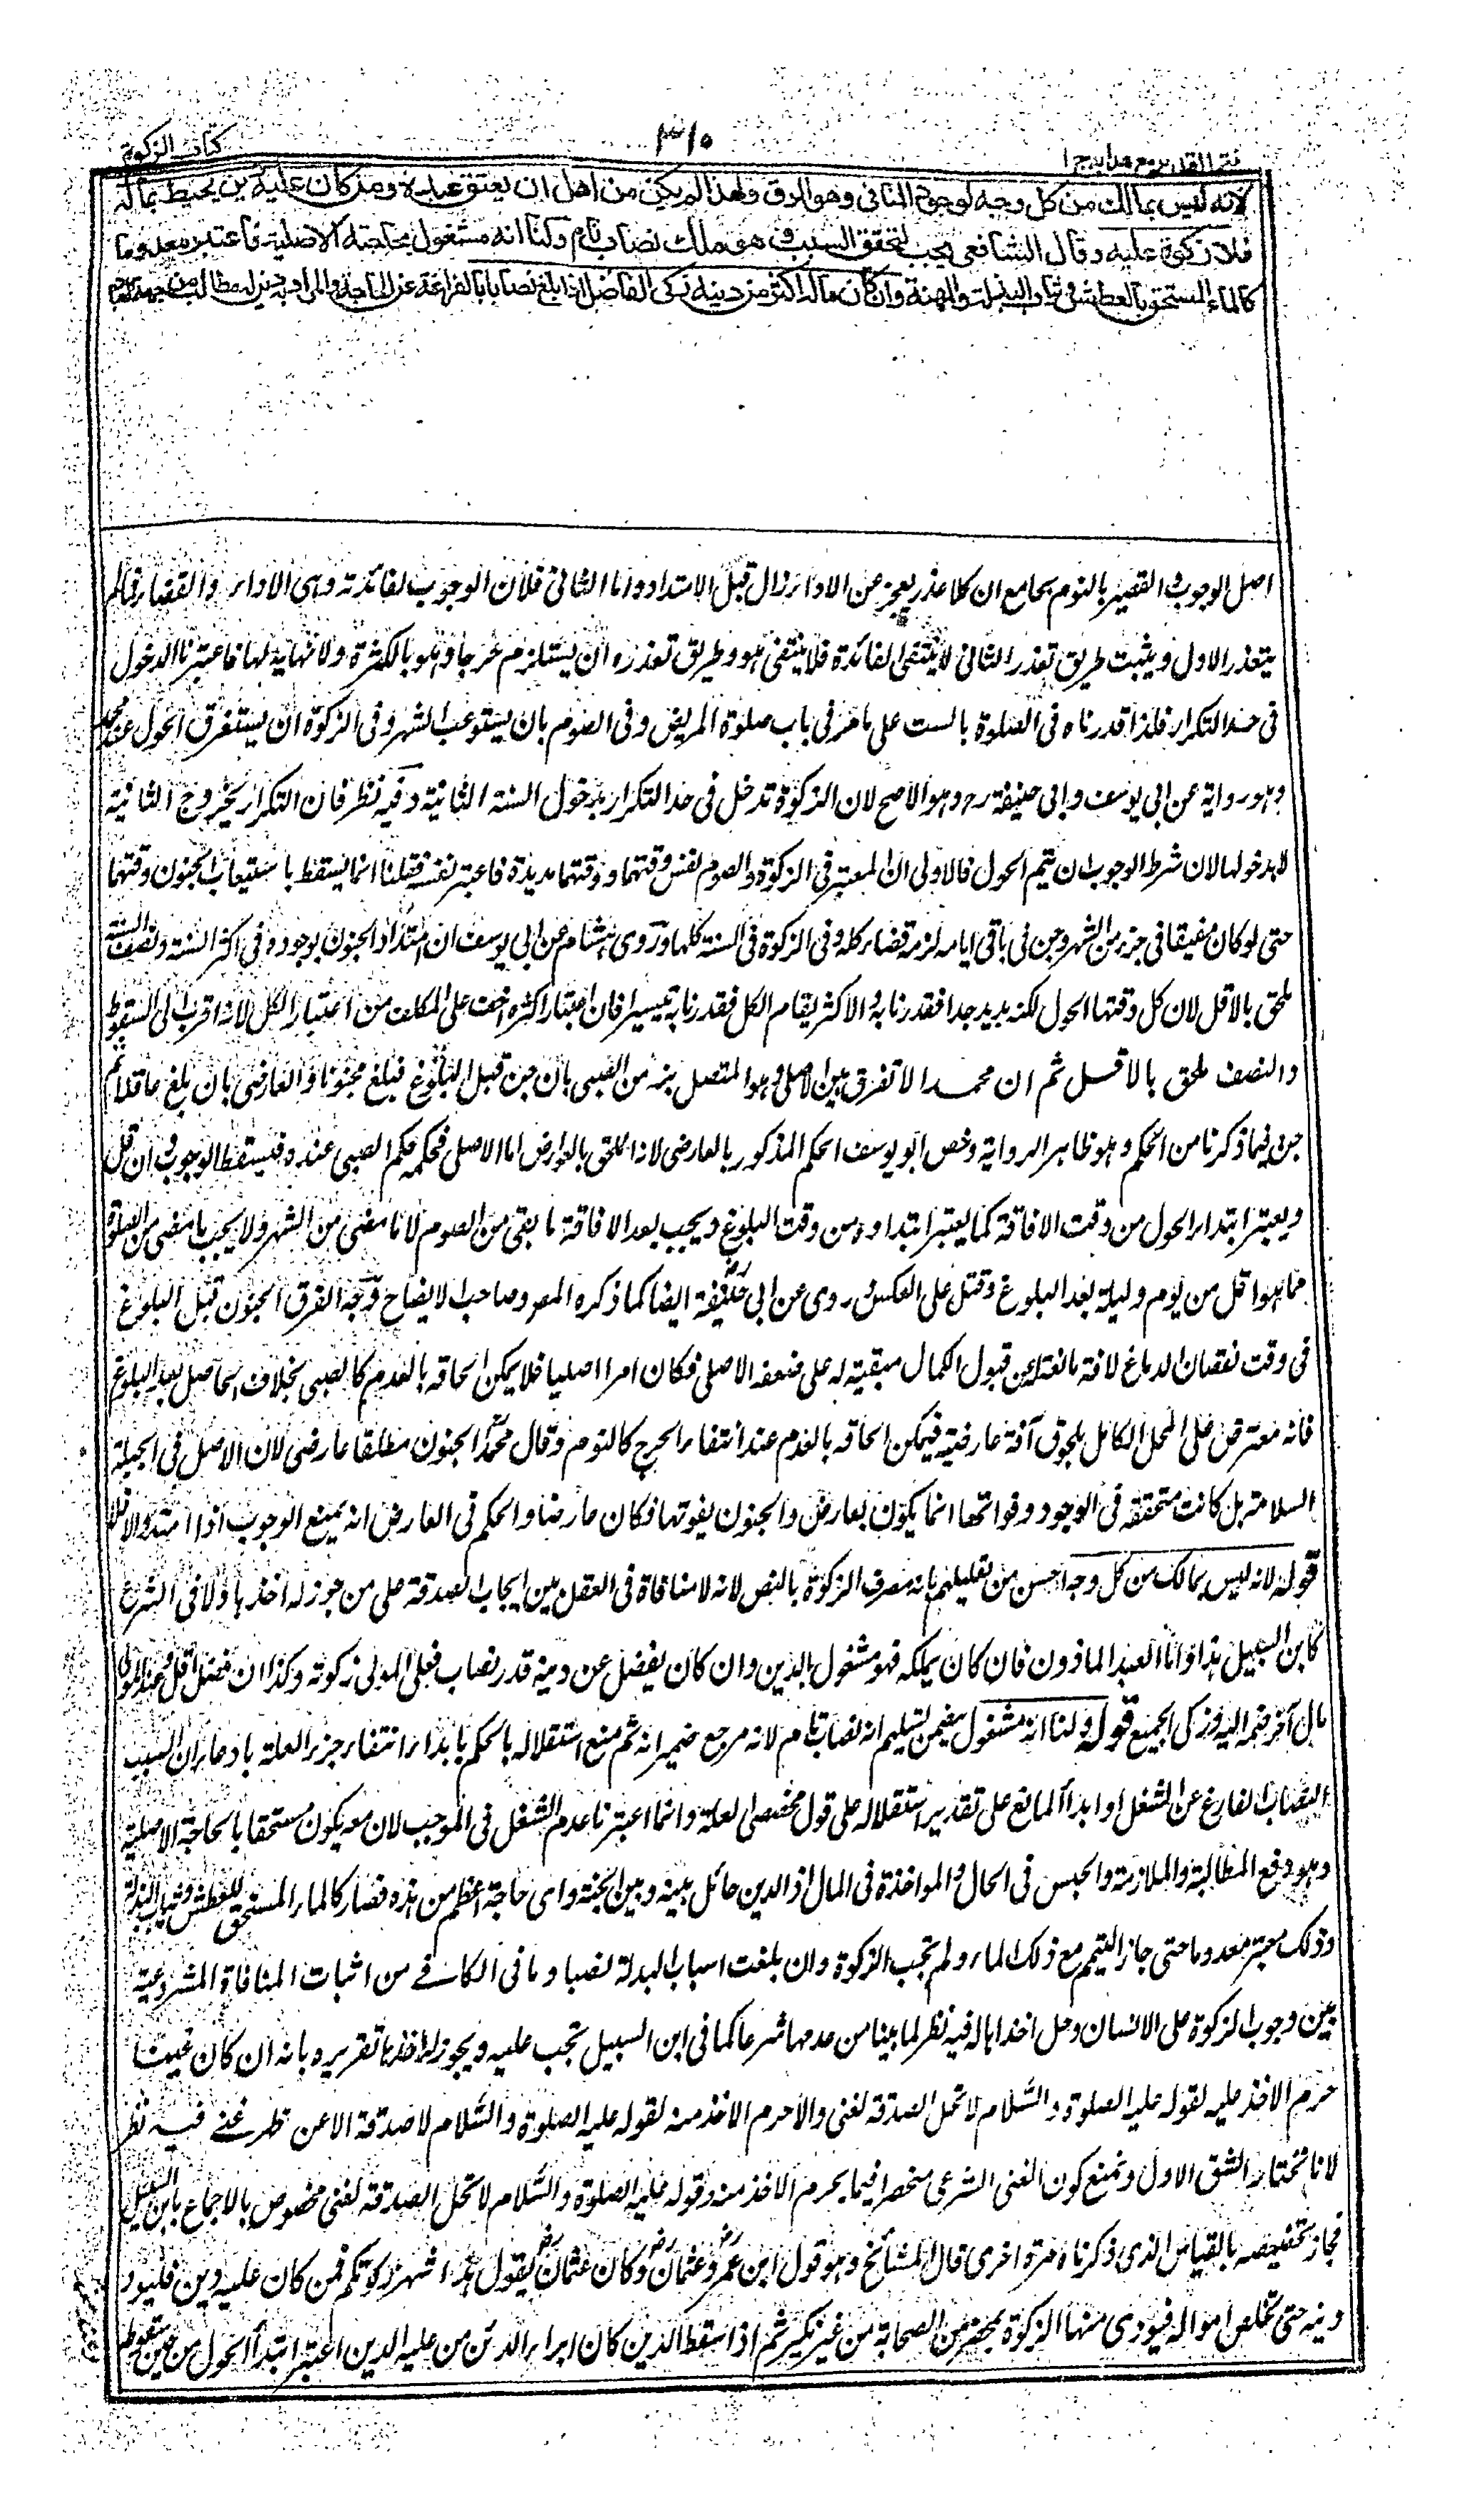 فتح القدير مع هدايه ج ١
٣١٠
كتاب الزكوة
لانه ليس بمالك من كل وجه لوجود المنافي وهو الرق ولهذا لم يكن من اهل ان يعتق عبده ومن كان عليه دين يحيط بماله
فلا زكوة عليه وقال الشافعي يجب لتحقق السبب وهو ملك نصاب تام ولنا انه مشغول بحاجته الاصلية فاعتبر معدوما
كالماء المستحق بالعطش وثياب البذلة والمهنة وان كان ماله اكثر من دينه زكى الفاضل اذا بلغ نصابا بالفراغه عن الحاجة والمراد به دين له مطالب من جهة العباد
اصل الوجوب والقصير بالنوم بجامع ان كلا عذر يعجز عن الاداء زال قبل الامتداد واما الثاني فلان الوجوب لفائدته وهى الاداء والقضاء فما لم
يتعذر الاول ويثبت طريق تعذر الثاني لا ينتفى الفائدة فلا ينتفى هو وطريق تعذره ان يستلزم حرجا وهو بالكثرة ولا نهاية لها فاعتبرنا الدخول
فى حد التكرار فلذا قدرناه فى الصلوة بالست على ما مر فى باب صلوة المريض وفى الصوم بان يستوعب الشهر وفى الزكوة ان يستغرق الحول عند محمد
وهو رواية عن ابى يوسف وابى حنيفة رح وهو الاصح لان الزكوة تدخل فى حد التكرار بدخول السنة الثانية وفيه نظر فان التكرار بخروج الثانية
لا بدخولها لان شرط الوجوب ان يتم الحول فالاولى ان المعتبر فى الزكوة والصوم نفس وقتهما ووقتهما مديدة فاعتبر نفسه فقلنا انما يسقط باستيعاب الجنون وقتهما
حتى لو كان مفيقا فى جزء من الشهر وجن فى باقى ايامه لزمه قضاء كله وفى الزكوة فى السنة كلها وروى هشام عن ابى يوسف ان امتداد الجنون بوجوده فى اكثر السنة ونصف السنة
ملحق بالاقل لان كل وقتها الحول لكنه مديد جدا فقدرنا به والاكثر يقام مقام الكل فقدرنا به تيسيرا فان اعتبار اكثره اخف على المكلف من اعتبار الكل لانه اقرب الى السقوط
والنصف ملحق بالاقل ثم ان محمدا لا تفرق بين الاصلى وهو المتصل بزمن الصبى بان جن قبل البلوغ فبلغ مجنونا والعارضى بان بلغ عاقلا ثم
جن فيما ذكرنا من الحكم وهو ظاهر الرواية وخص ابو يوسف الحكم المذكور بالعارضى لانه الملحق بالعوارض اما الاصلى فحكمه حكم الصبى عنده فيسقط الوجوب وان قل
ويعتبر ابتداء الحول من وقت الافاقة كما يعتبر ابتداوه من وقت البلوغ ويجب بعد الافاقة ما بقى من الصوم لا ما مضى من الشهر ولا يجب ما مضى من الصلوة
مما هو اقل من يوم وليلة بعد البلوغ وقيل على العكس روى عن ابى حنيفة رض ايضا كما ذكره المص وصاحب الايضاح وجه الفرق الجنون قبل البلوغ
فى وقت نقصان الدماغ لافة مانعة له عن قبول الكمال مبقية له على ضعفه الاصلى فكان امرا اصليا فلا يمكن الحاقه بالعدم كالصبى بخلاف الحاصل بعد البلوغ
فانه معترض على المحل الكامل بلحوق آفة عارضية فيمكن الحاقه بالعدم عند انتفاء الحرج كالنوم وقال محمد الجنون مطلقا عارضى لان الاصل فى الجبلة
السلامة بل كانت متحققة فى الوجود وفواتها انما يكون بعارض والجنون يفوتها فكان عارضا والحكم فى العارض انه يمنع الوجوب اذا امتد والا فلا
قوله لانه ليس بمالك من كل وجه احسن من تعليلهم بانه مصرف الزكوة بالنص لانه لا منافاة فى العقل بين ايجاب الصدقة على من جوز له اخذها ولا فى الشرع
كابن السبيل هذا واما العبد الماذون فان كان يملكه فهو مشغول بالدين وان كان يفضل عن دينه قدر نصاب فعلى المولى زكوته وكذا ان فضل اقل وعند المولى
مال آخر ضمه اليه وزكى الجميع قوله ولنا انه مشغول يتضمن تسليم انه نصاب تام لانه مرجع ضمير انه ثم منع استقلاله بالحكم بابداء انتفاء جزء العلة بادعاء ان السبب
النصاب الفارغ عن الشغل او ابداء المانع على تقدير استقلاله على قول مخصصى العلة وانما اعتبرنا عدم الشغل فى الموجب لان معه يكون مستحقا بالحاجة الاصلية
وهو دفع المطالبة والملازمة والحبس فى الحال والمواخذة فى المال اذ الدين حائل بينه وبين الجنة واى حاجة اعظم من هذه فصار كالماء المستحق للعطش وثياب البذلة
وذلك معتبر معدوما حتى جاز التيمم مع ذلك الماء ولم تجب الزكوة وان بلغت اسباب البدلة نصبا وما فى الكافى من اثبات المنافاة المشروعية
بين وجوب الزكوة على الانسان وحل اخذها له فيه نظر لما بينا من عدمها شرعا كما فى ابن السبيل تجب عليه ويجوز له اخذها تقريره بانه ان كان غنيا
حرم الاخذ عليه لقوله عليه الصلوة والسلام لا تحل الصدقة لغنى والا حرم الاخذ منه لقوله عليه الصلوة والسلام لا صدقة الا عن ظهر غنى فيه نظر
لانا نختار الشق الاول ونمنع كون الغنى الشرعى منحصرا فيما يحرم الاخذ منه وقوله عليه الصلوة والسلام لا تحل الصدقة لغنى مخصوص بالاجماع بابن السبيل
فجاز تخصيصه بالقياس الذى ذكرناه مرة اخرى قال المشائخ وهو قول ابن عمر رض وعثمان رض وكان عثمان رض يقول هذا شهر زكوتكم فمن كان عليه دين فليود
دينه حتى تخلص امواله فيودى منها الزكوة بمحضر من الصحابة من غير نكير ثم اذا سقط الدين كان ابراء الدائن من عليه الدين اعتبر ابتداء الحول من حين سقوطه